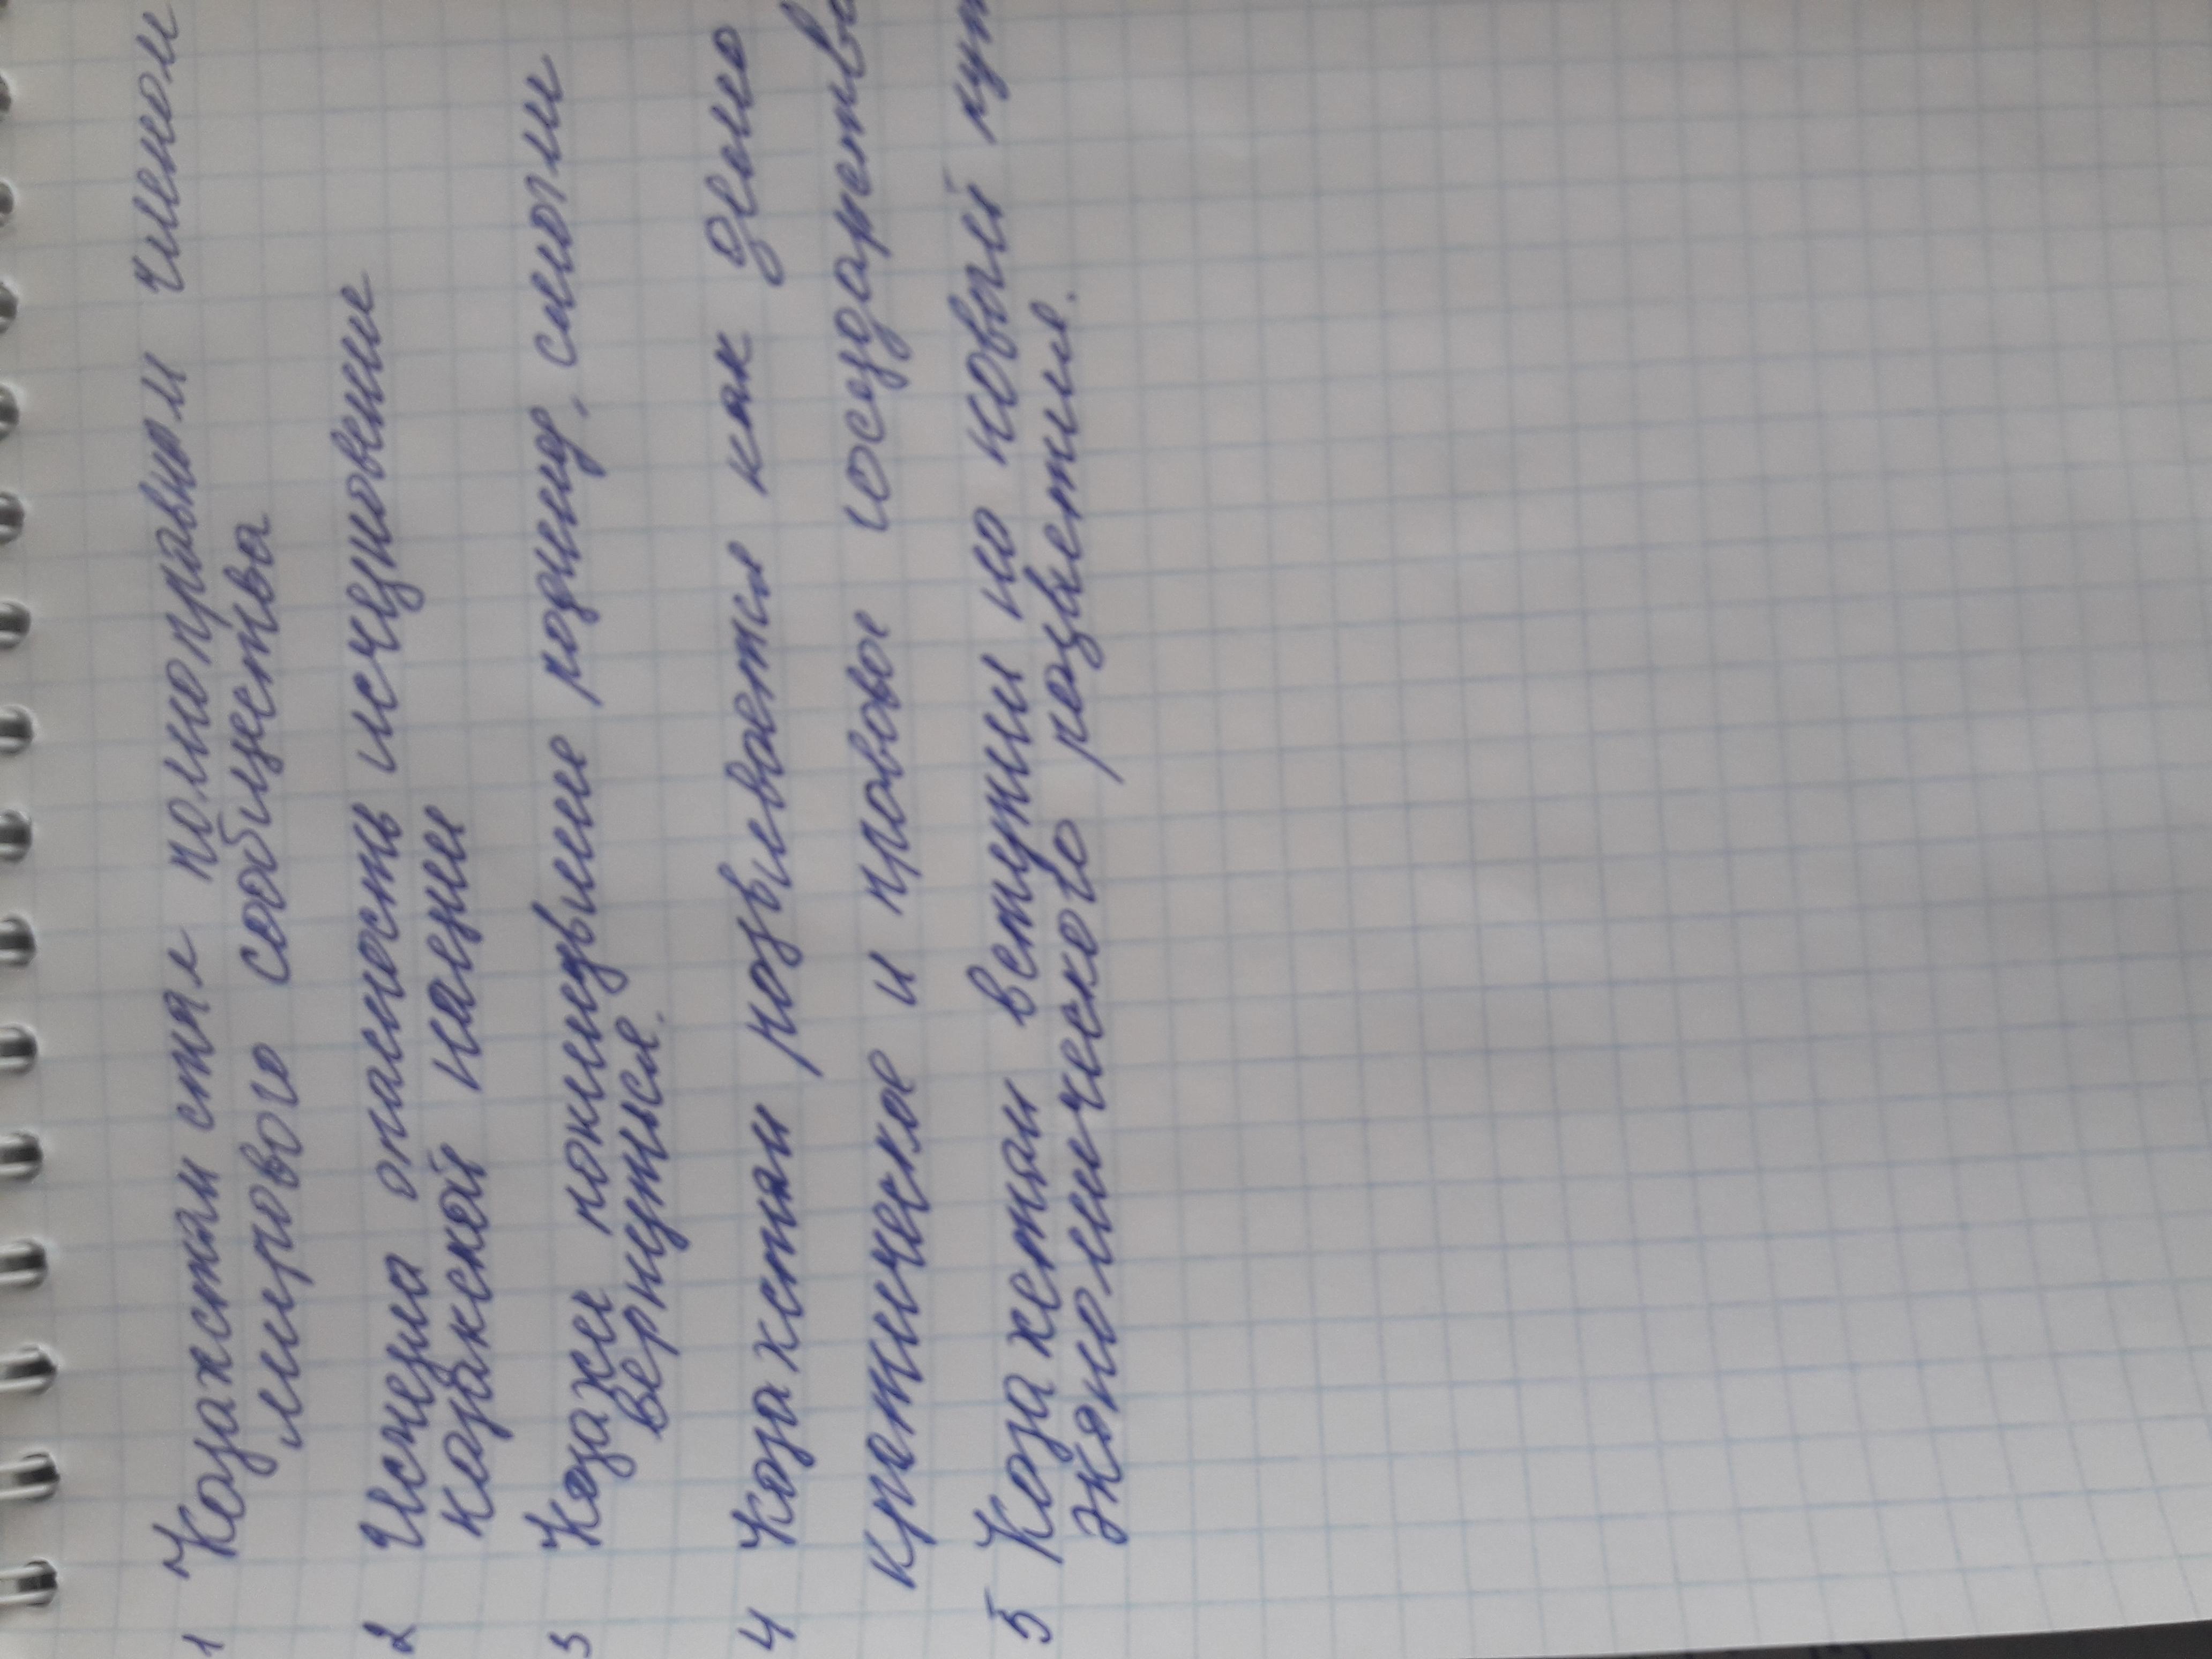 1 Казахстан стал полноправным членом
мирового сообщества
2 Исчезла опасность исчезновение
казахской нации
3 Казахи покинувшие родину, смогли
вернуться.
4 Казахстан развивается как демо
кратическое и правовое государство
5 Казахстан вступил на новый пут
экономического расцветия.